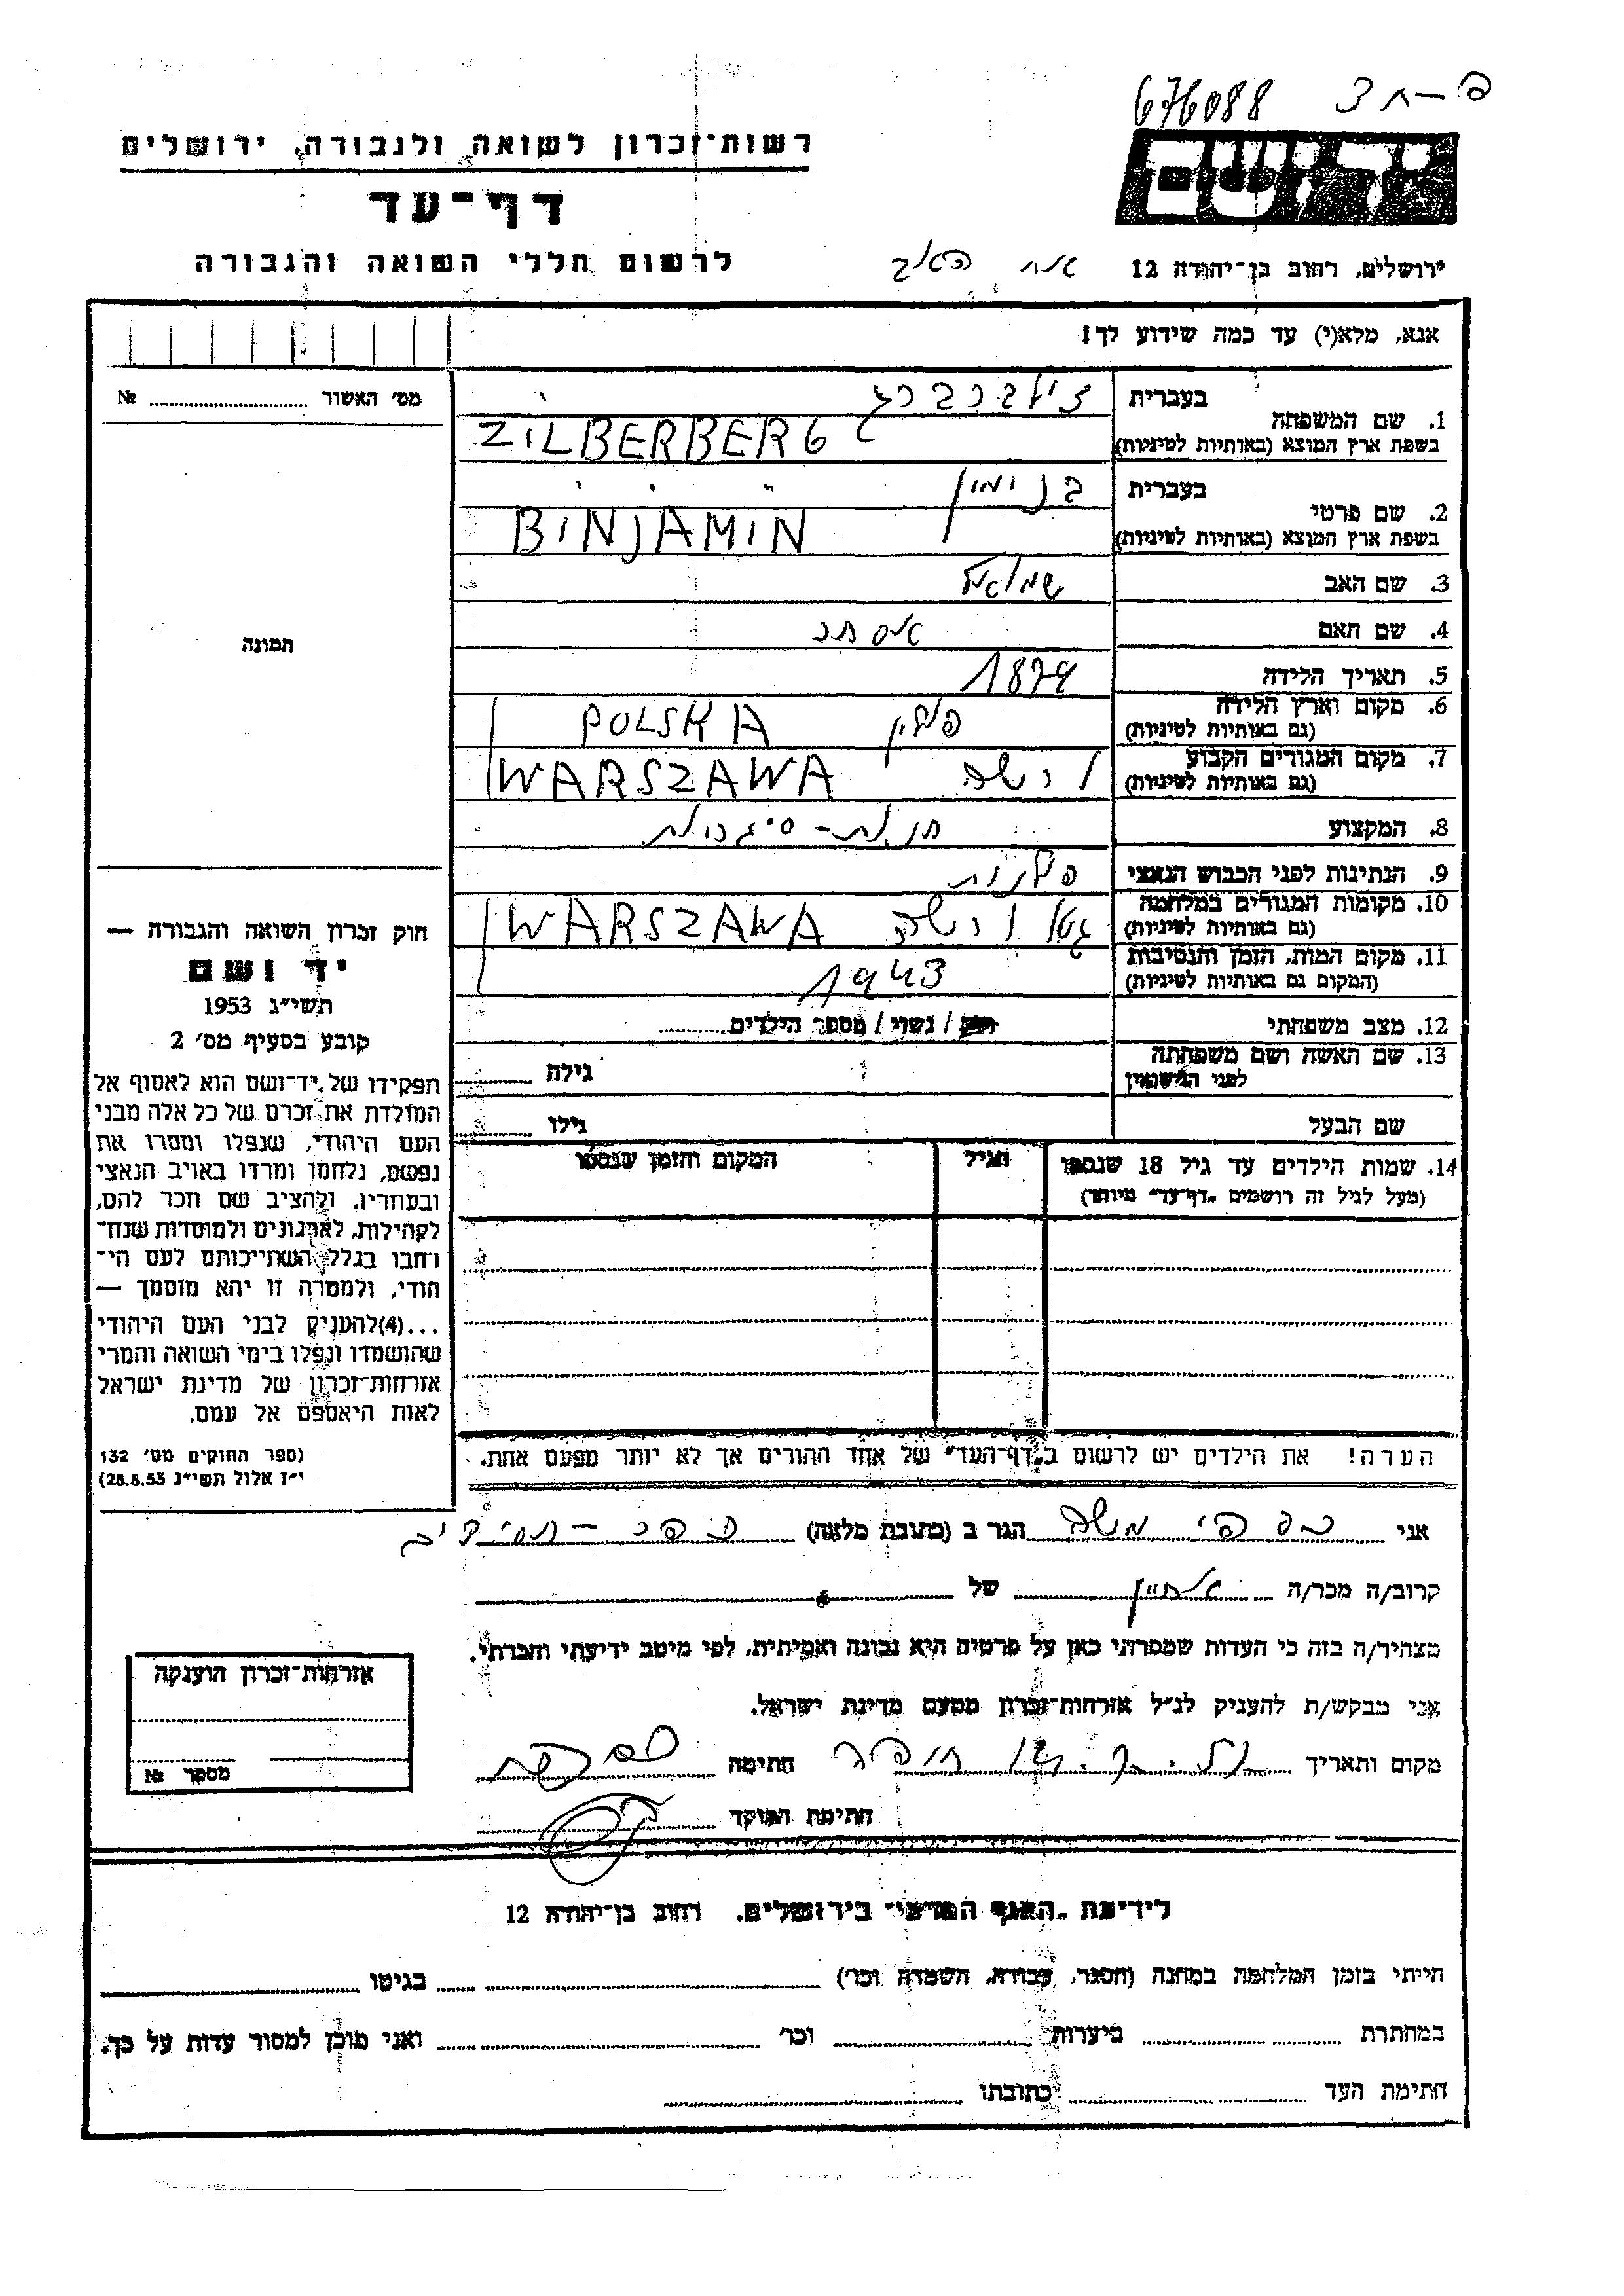 676088
רשות־זכרון לשואה ולגבורה, ירושלים
דף־עד
לרשום חללי השואה והגבורה
ירושלים, רחוב בן־יהודה 12
אנא, מלא(י) עד כמה שידוע לך!
מס׳ האשור № 
1. שם המשפחה
בעברית זילברברג
בשפת ארץ המוצא (באותיות לטיניות) ZILBERBERG
2. שם פרטי
בעברית בנימין
בשפת ארץ המוצא (באותיות לטיניות) BINJAMIN
3. שם האב שמואל
4. שם האם אסתר
5. תאריך הלידה 1879
6. מקום וארץ הלידה (גם באותיות לטיניות) פולין POLSKA
7. מקום המגורים הקבוע (גם באותיות לטיניות) ורשה WARSZAWA
8. המקצוע
9. הנתינות לפני הכבוש הנאצי פולנית
10. מקומות המגורים במלחמה (גם באותיות לטיניות) גטו ורשה WARSZAWA
11. מקום המות, הזמן והנסיבות (המקום גם באותיות לטיניות) 1943
12. מצב משפחתי רוק / נשוי / מספר הילדים
13. שם האשה ושם משפחתה לפני הנישואין גילה
שם הבעל גילו
14. שמות הילדים עד גיל 18 שנספו
(מעל לגיל זה רושמים „דף־עד" מיוחד)
הגיל
המקום והזמן שנספו
הערה! את הילדים יש לרשום ב„דף־העד" של אחד ההורים אך לא יותר מפעם אחת.
תמונה
חוק זכרון השואה והגבורה —
יד ושם
תשי״ג 1953
קובע בסעיף מס׳ 2
תפקידו של יד־ושם הוא לאסוף אל
המולדת את זכרם של כל אלה מבני
העם היהודי, שנפלו ומסרו את
נפשם, נלחמו ומרדו באויב הנאצי
ובעוזריו, ולהציב שם וזכר להם,
לקהילות, לארגונים ולמוסדות שנח־
רבו בגלל השתייכותם לעם הי־
הודי, ולמטרה זו יהא מוסמך —
...(4)להעניק לבני העם היהודי
שהושמדו ונפלו בימי השואה והמרי
אזרחות־זכרון של מדינת ישראל
לאות היאספם אל עמם.
(ספר החוקים מס׳ 132
י״ז אלול תשי״ג 28.8.53)
אני משה הגר ב (כתובת מלאה)
קרוב/ה מכר/ה אחיין של
מצהיר/ה בזה כי העדות שמסרתי כאן על פרטיה היא נכונה ואמיתית, לפי מיטב ידיעתי והכרתי.
אני מבקש/ת להעניק לנ״ל אזרחות־זכרון מטעם מדינת ישראל.
מקום ותאריך חתימה
חתימת הפוקד
אזרחות־זכרון הוענקה
מספר №
לידיעת „האגף המדעי" בירושלים, רחוב בן־יהודה 12
הייתי בזמן המלחמה במחנה (הסגר, עבודה, השמדה וכו׳) בגיטו
במחתרת ביערות וכו׳ ואני מוכן למסור עדות על כך.
חתימת העד כתובתו